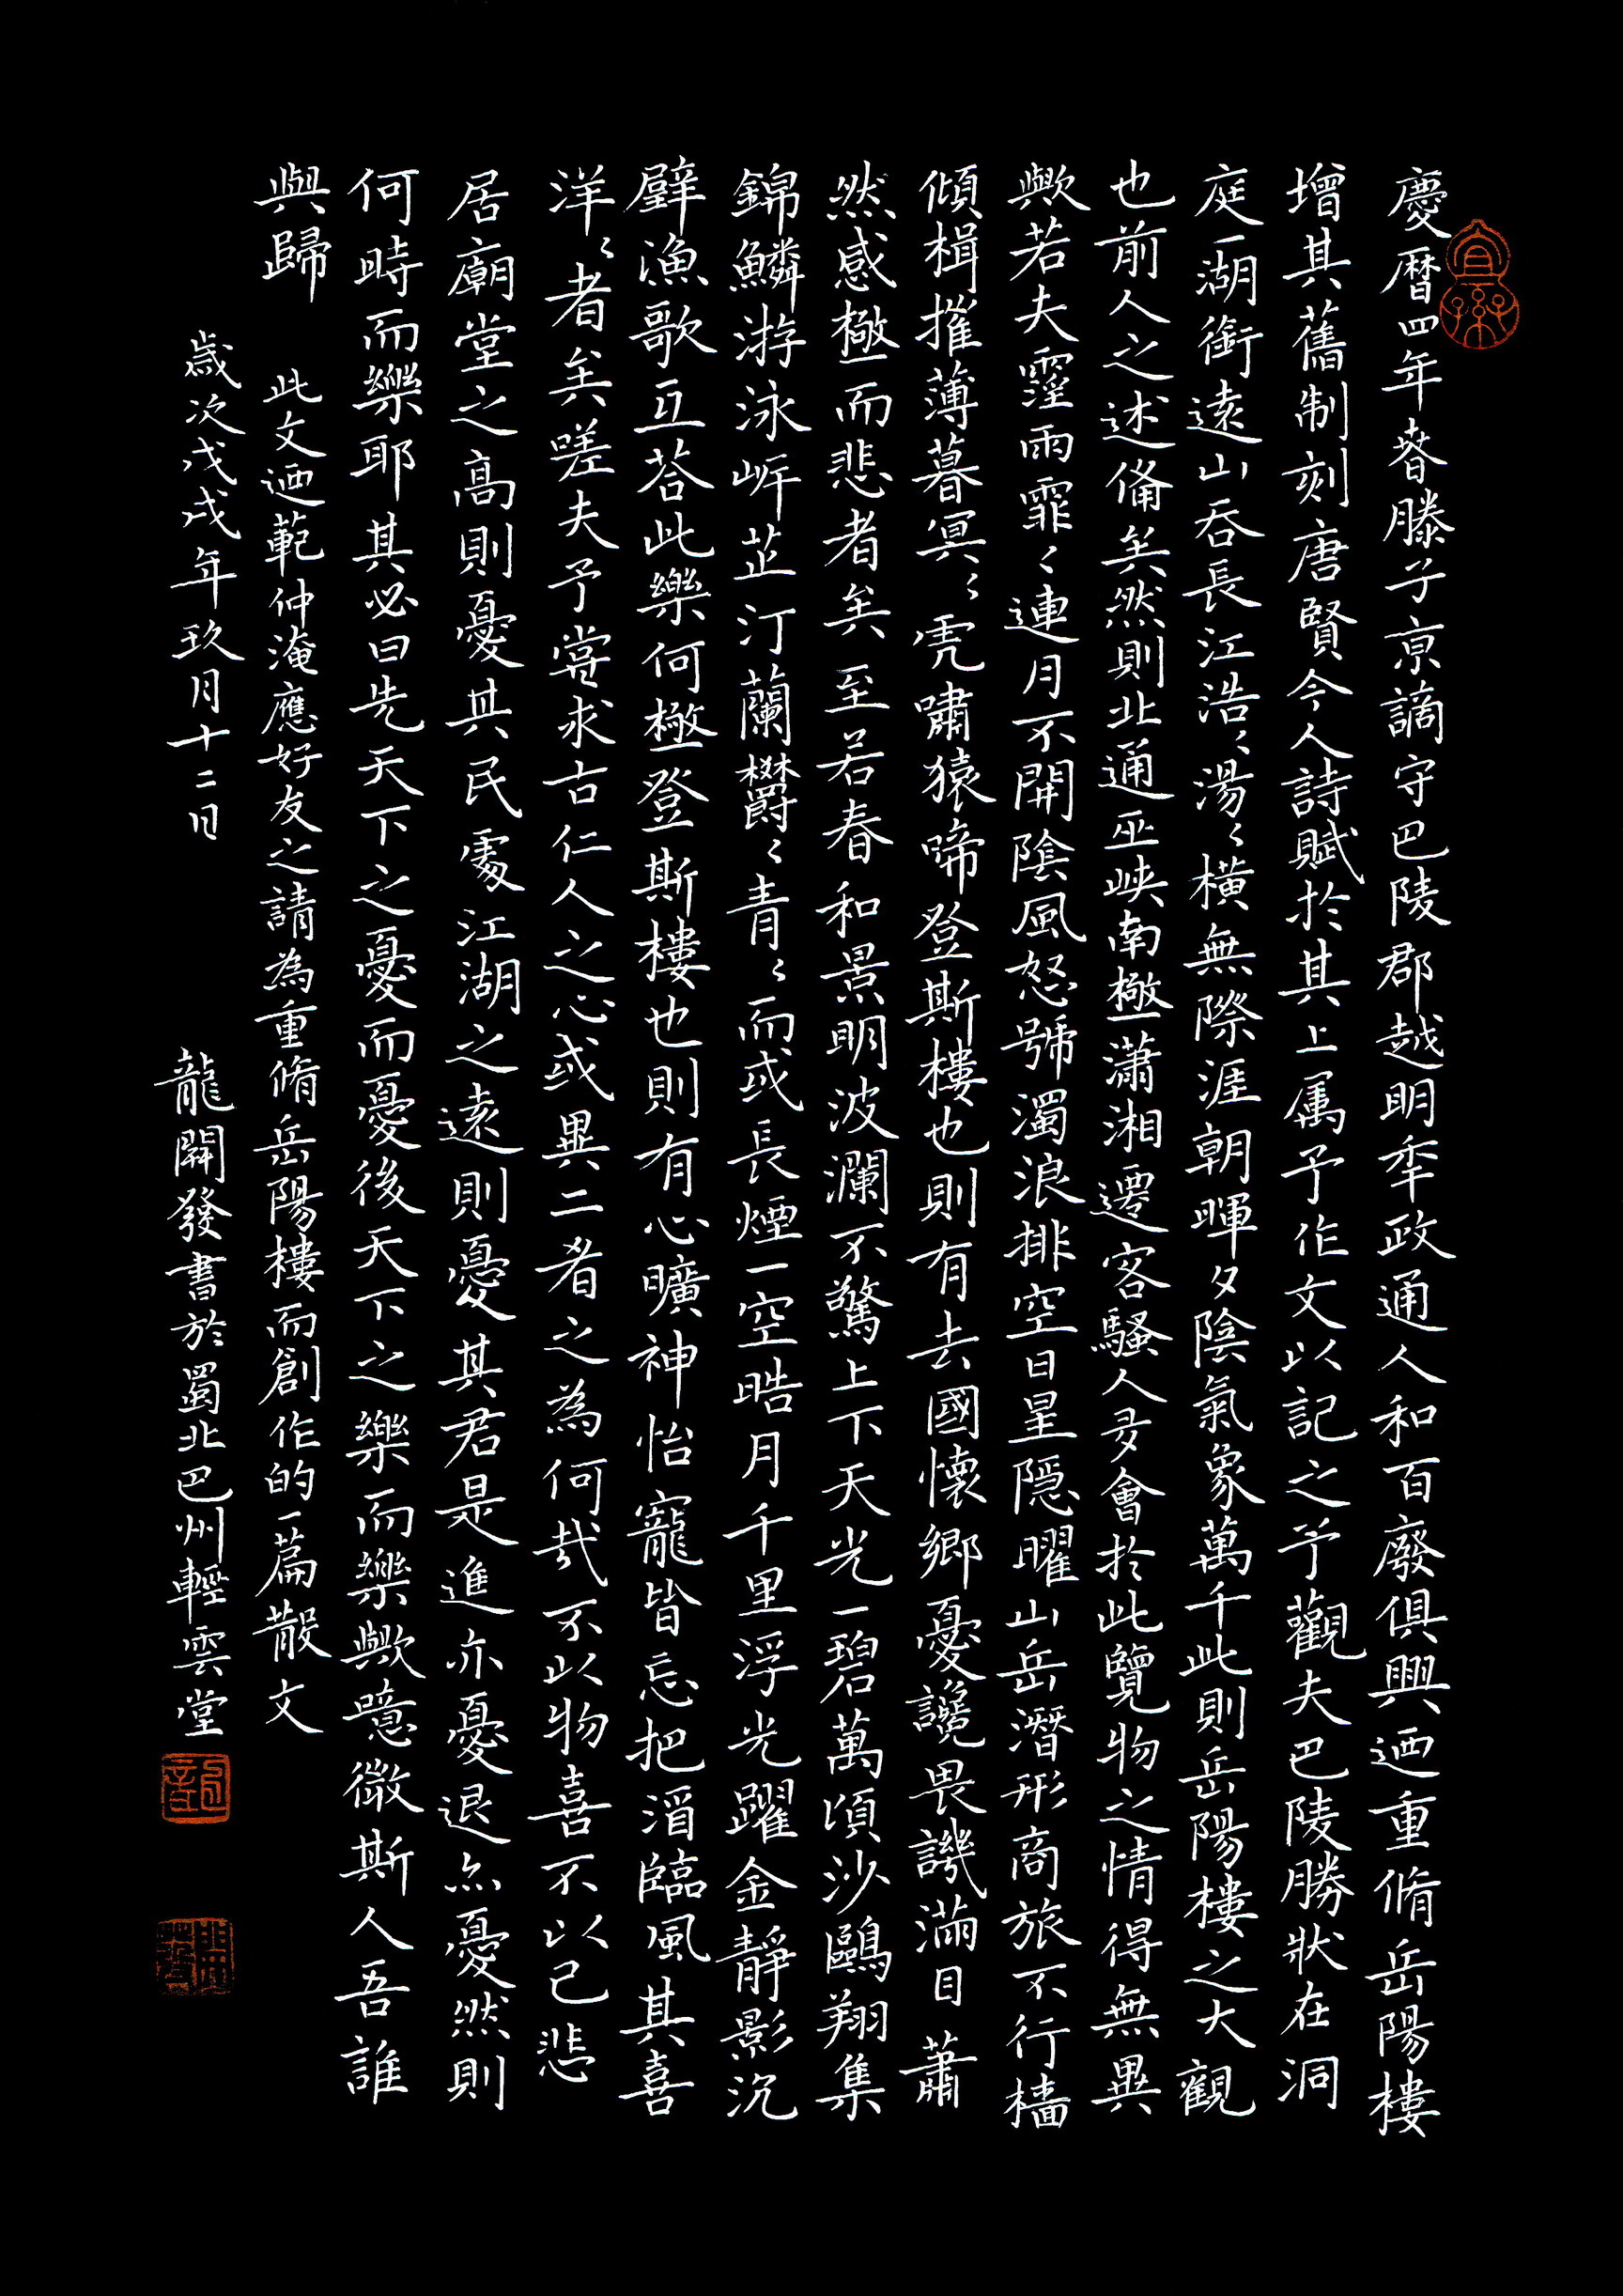 慶暦四年萅滕子亰謫守巴陵郡越明秊政通人和百廢俱興迺重脩岳陽樓
增其舊制刻唐賢今人詩賦於其上属予作文以記之予觀夫巴陵勝狀在洞
庭一湖銜遠山吞長江浩〻湯〻橫無際涯朝暉夕陰氣象萬千此則岳陽樓之大觀
也前人之述備矣然則北通巫峽南極瀟湘遷客騷人多會於此覽物之情得無異
歟若夫霪雨霏〻連月不開陰風怒號濁浪排空日星隱曜山岳潛形商旅不行檣
傾楫摧薄暮冥〻虎嘯猿啼登斯樓也則有去國懷鄉憂讒畏譏滿目蕭
然感極而悲者矣至若春和景明波瀾不驚上下天光一碧萬頃沙鷗翔集
錦鱗游泳岸芷汀蘭欝〻青〻而或長煙一空皓月千里浮光躍金靜影沉
璧漁歌互荅此樂何極登斯樓也則有心曠神怡寵皆忘把酒臨風其喜
洋〻者矣嗟夫予嘗求古仁人之心或異二者之為何哉不以物喜不以己悲
居廟堂之高則憂其民處江湖之遠則憂其君是進亦憂退亦憂然則
何時而樂耶其必曰先天下之憂而憂後天下之樂而樂歟噫微斯人吾誰
與歸 此文迺範仲淹應好友之請為重脩岳陽樓而創作的一篇散文
歲次戊戌年玖月十二日 龍開發書於蜀北巴州輕雲堂